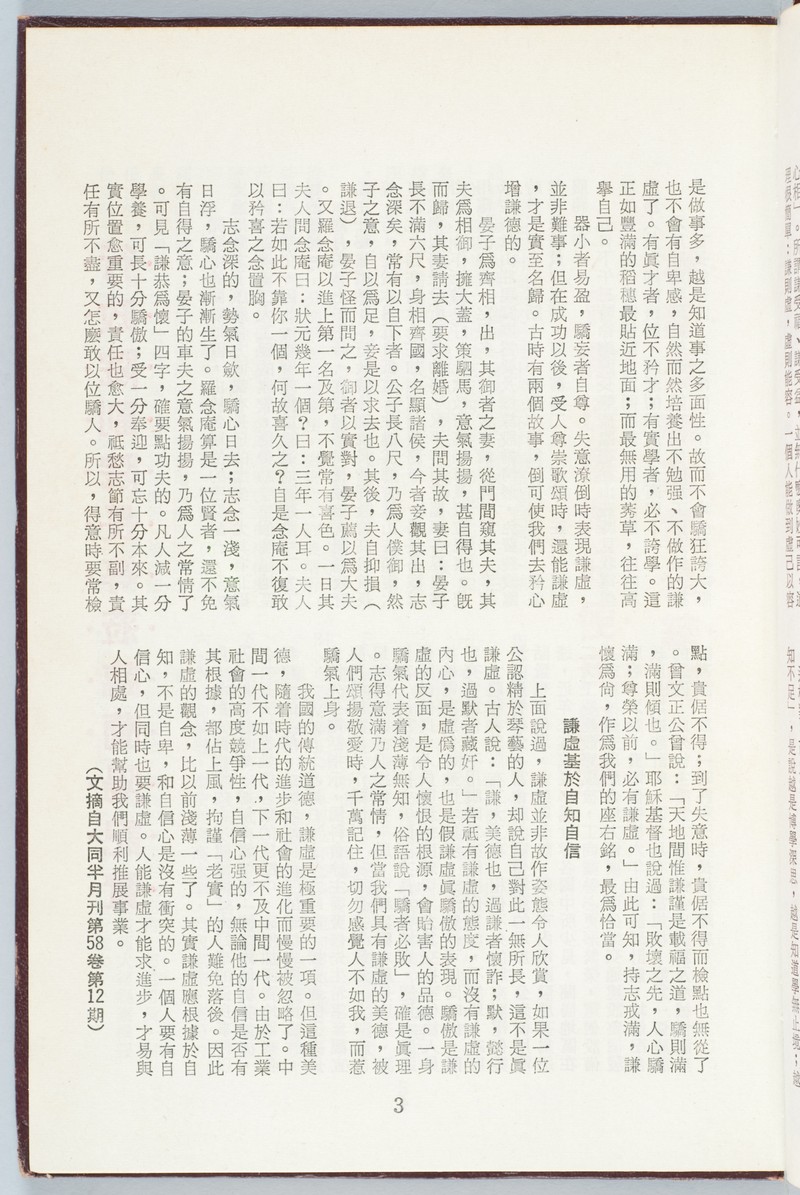 是做事多，越是知道事之多面性。故而不會驕狂誇大，
也不會有自卑感，自然而然培養出不勉强、不做作的謙
虛了。有眞才者，位不矜才；有實學者，必不誇學。這
正如豐滿的稻穗最貼近地面；而最無用的莠草，往往高
舉自己。
器小者易盈，驕妄者自尊。失意潦倒時表現謙虛，
並非難事；但在成功以後，受人尊崇歌頌時，還能謙虛
，才是實至名歸。古時有兩個故事，倒可使我們去矜心
增謙德的。
晏子爲齊相，出，其御者之妻，從門間窺其夫，其
夫爲相御，擁大蓋，策駟馬，意氣揚揚，甚自得也。旣
而歸，其妻請去（要求離婚），夫問其故，妻曰：晏子
長不滿六尺，身相齊國，名顯諸侯，今者妾觀其出，志
念深矣，常有以自下者。公子長八尺，乃爲人僕御，然
子之意，自以爲足，妾是以求去也。其後，夫自抑損（
謙退），晏子怪而問之，御者以實對，晏子薦以爲大夫
。又羅念庵以進士第一名及第，不覺常有喜色。一日其
夫人問念庵曰：狀元幾年一個？曰：三年一人耳。夫人
曰：若如此不靠你一個，何故喜久之？自是念庵不復敢
以矜喜之念置胸。
志念深的，勢氣日斂，驕心日去；志念一淺，意氣
日浮，驕心也漸漸生了。羅念庵算是一位賢者，還不免
有自得之意；晏子的車夫之意氣揚揚，乃爲人之常情了
。可見「謙恭爲懷」四字，確要點功夫的。凡人減一分
學養，可長十分驕傲；受一分奉迎，可忘十分本來。其
實位置愈重要的，責任也愈大，祗愁志節有所不副，責
任有所不盡，又怎麼敢以位驕人。所以，得意時要常檢
點，貴倨不得；到了失意時，貴倨不得而檢點也無從了
。曾文正公曾說：「天地間惟謙謹是載福之道，驕則滿
，滿則傾也。」耶穌基督也說過：「敗壞之先，人心驕
滿；尊榮以前，必有謙虛。」由此可知，持志戒滿，謙
懷爲尙，作爲我們的座右銘，最爲恰當。
謙虛基於自知自信
上面說過，謙虛並非故作姿態令人欣賞，如果一位
公認精於琴藝的人，却說自己對此一無所長，這不是眞
謙虛。古人說：「謙，美德也，過謙者懷詐；默，懿行
也，過默者藏奸。」若祗有謙虛的態度，而沒有謙虛的
內心，是虛僞的，也是假謙虛眞驕傲的表現。驕傲是謙
虛的反面，是令人懷恨的根源，會貽害人的品德。一身
驕氣代表着淺薄無知，俗語說「驕者必敗」，確是眞理
。志得意滿乃人之常情，但當我們具有謙虛的美德，被
人們頌揚敬愛時，千萬記住，切勿感覺人不如我，而惹
驕氣上身。
我國的傳統道德，謙虛是極重要的一項。但這種美
德，隨着時代的進步和社會的進化而慢慢被忽略了。中
間一代不如上一代，下一代更不及中間一代。由於工業
社會的高度競爭性，自信心强的，無論他的自信是否有
其根據，都佔上風，拘謹「老實」的人難免落後。因此
謙虛的觀念，比以前淺薄一些了。其實謙虛應根據於自
知，不是自卑，和自信心是沒有衝突的。一個人要有自
信心，但同時也要謙虛。人能謙虛才能求進步，才易與
人相處，才能幫助我們順利推展事業。
（文摘自大同半月刊第58卷第12期）
3